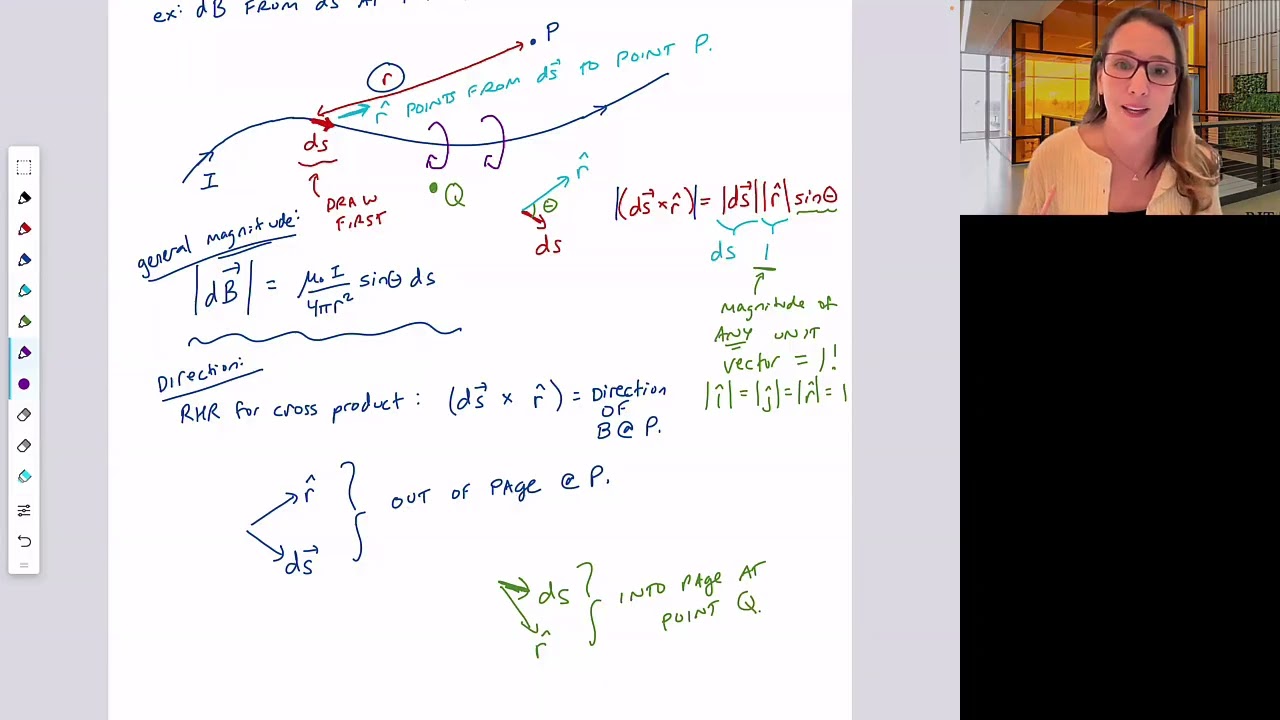 ex: dB FROM ds AT
P
r
r̂ POINTS FROM ds⃗ TO POINT P.
ds
I
DRAW
FIRST
Q
r̂
θ
ds
|(ds⃗ × r̂)| = |ds⃗||r̂| sinθ
ds 1
magnitude of
ANY UNIT
vector = 1!
|î| = |ĵ| = |r̂| = 1
general magnitude:
|dB⃗| = μ₀ I / 4πr² sinθ ds
Direction:
RHR for cross product: (ds⃗ × r̂) = Direction
OF
B @ P.
r̂
ds⃗
OUT OF PAGE @ P.
ds
r̂
INTO PAGE AT
POINT Q.